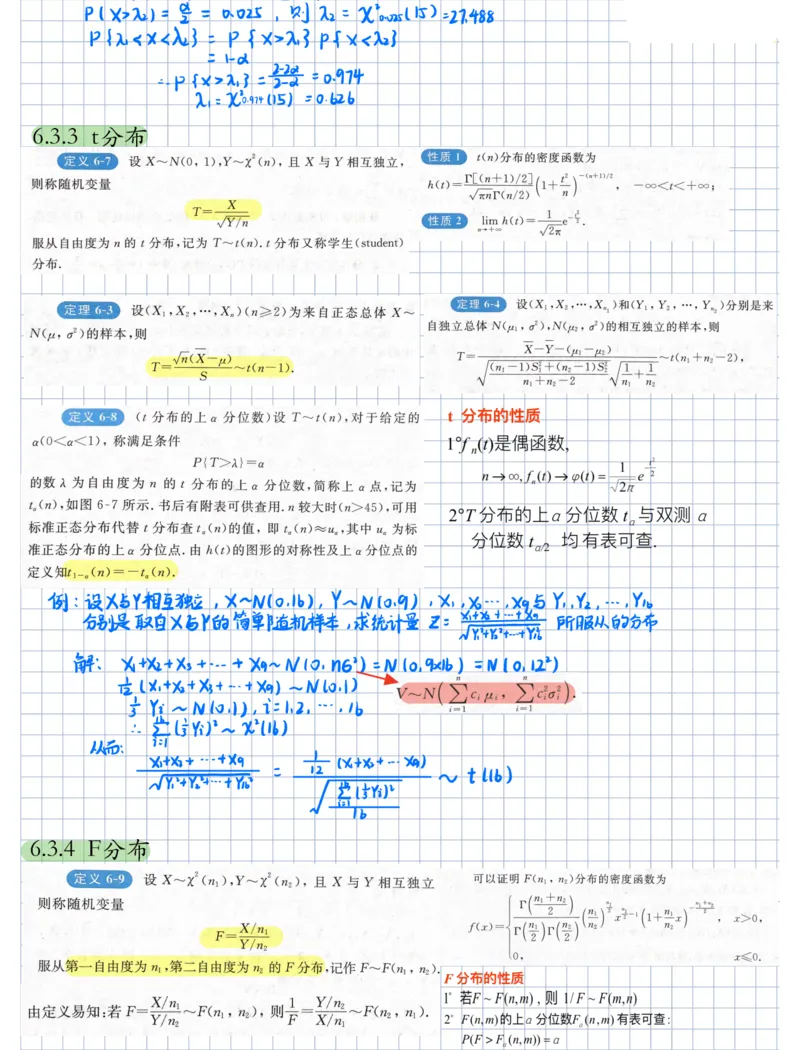 P(X>λ₂) = α/2 = 0.025 , 则 λ₂ = χ²0.025(15) = 27.488
P{λ₁<X<λ₂} = P{X>λ₁} P{X<λ₂}
= 1-α
∴ P{X>λ₁} = (2-2α)/(2-α) = 0.974
λ₁ = χ²0.974(15) = 0.626
6.3.3 t分布
定义 6-7 设 X～N(0, 1),Y～χ²(n), 且 X 与 Y 相互独立,
则称随机变量
T=X/√(Y/n)
服从自由度为 n 的 t 分布,记为 T～t(n). t 分布又称学生(student)
分布.
性质 1 t(n)分布的密度函数为
h(t)=Γ[(n+1)/2]/(√(πn)Γ(n/2)) (1+t²/n)^(-(n+1)/2), -∞<t<+∞;
性质 2 lim(n→+∞) h(t)=1/√(2π) e^(-t²/2).
定理 6-3 设(X₁,X₂,…,Xₙ)(n≥2)为来自正态总体 X～
N(μ, σ²)的样本,则
T=√n(X̄-μ)/S～t(n-1).
定理 6-4 设(X₁,X₂,…,Xₙ₁)和(Y₁,Y₂,…,Yₙ₂)分别是来
自独立总体 N(μ₁, σ²),N(μ₂, σ²)的相互独立的样本,则
T=(X̄-Ȳ-(μ₁-μ₂))/(√(((n₁-1)S₁²+(n₂-1)S₂²)/(n₁+n₂-2)) √(1/n₁+1/n₂))～t(n₁+n₂-2),
定义 6-8 (t 分布的上 α 分位数)设 T～t(n),对于给定的
α(0<α<1), 称满足条件
P{T>λ}=α
的数 λ 为自由度为 n 的 t 分布的上 α 分位数,简称上 α 点,记为
tα(n),如图 6-7 所示. 书后有附表可供查用. n 较大时(n>45),可用
标准正态分布代替 t 分布查 tα(n)的值, 即 tα(n)≈uα,其中 uα 为标
准正态分布的上 α 分位点. 由 h(t)的图形的对称性及上 α 分位点的
定义知t₁₋α(n)=-tα(n).
t 分布的性质
1°fₙ(t)是偶函数,
n→∞,fₙ(t)→φ(t)=1/√(2π) e^(-t²/2)
2°T分布的上α分位数tα与双测α
分位数tα/2 均有表可查.
例:设X与Y相互独立 , X~N(0.16), Y~N(0.9) , X₁, X₂ …, X₉与Y₁,Y₂, …, Y₁₆
分别是取自X与Y的简单随机样本 , 求统计量 Z = (X₁+X₂+…+X₉)/√(Y₁²+Y₂²+…+Y₁₆²) 所服从的分布
解: X₁+X₂+X₃+…+X₉~N(0, nσ²) = N(0.9×16) = N(0.12²)
1/12 (X₁+X₂+X₃+…+X₉) ~N(0.1)
V～N(∑ⁿᵢ₌₁ cᵢμᵢ, ∑ⁿᵢ₌₁ cᵢ²σᵢ²).
1/3 Yᵢ ~ N(0.1), i=1.2, …, 16
∴ ∑¹⁶ᵢ₌₁ (1/3 Yᵢ)² ~ χ²(16)
从而:
(X₁+X₂+…+X₉)/√(Y₁²+Y₂²+…+Y₁₆²) = (1/12 (X₁+X₂+…X₉))/√(∑¹⁶ᵢ₌₁(1/3 Yᵢ)²/16) ~ t(16)
6.3.4 F分布
定义 6-9 设 X～χ²(n₁),Y～χ²(n₂), 且 X 与 Y 相互独立
则称随机变量
F=(X/n₁)/(Y/n₂)
服从第一自由度为 n₁,第二自由度为 n₂ 的 F 分布,记作 F～F(n₁, n₂).
由定义易知:若 F=(X/n₁)/(Y/n₂)～F(n₁, n₂), 则 1/F=(Y/n₂)/(X/n₁)～F(n₂, n₁).
可以证明 F(n₁, n₂)分布的密度函数为
f(x)={Γ((n₁+n₂)/2)/(Γ(n₁/2)Γ(n₂/2)) (n₁/n₂)^(n₁/2) x^(n₁/2-1) (1+n₁/n₂ x)^(-(n₁+n₂)/2), x>0,
0, x≤0.
F 分布的性质
1° 若F ~ F(n,m) , 则 1/F ~ F(m,n)
2° F(n,m)的上α分位数Fα(n,m)有表可查:
P(F > Fα(n,m)) = α